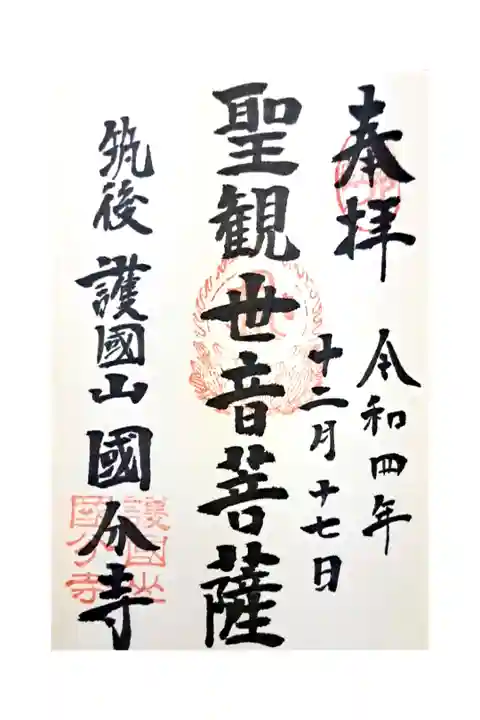 奉拝
令和四年
十二月十七日
聖観世音菩薩
筑後
護國山國分寺
護國山
國分寺